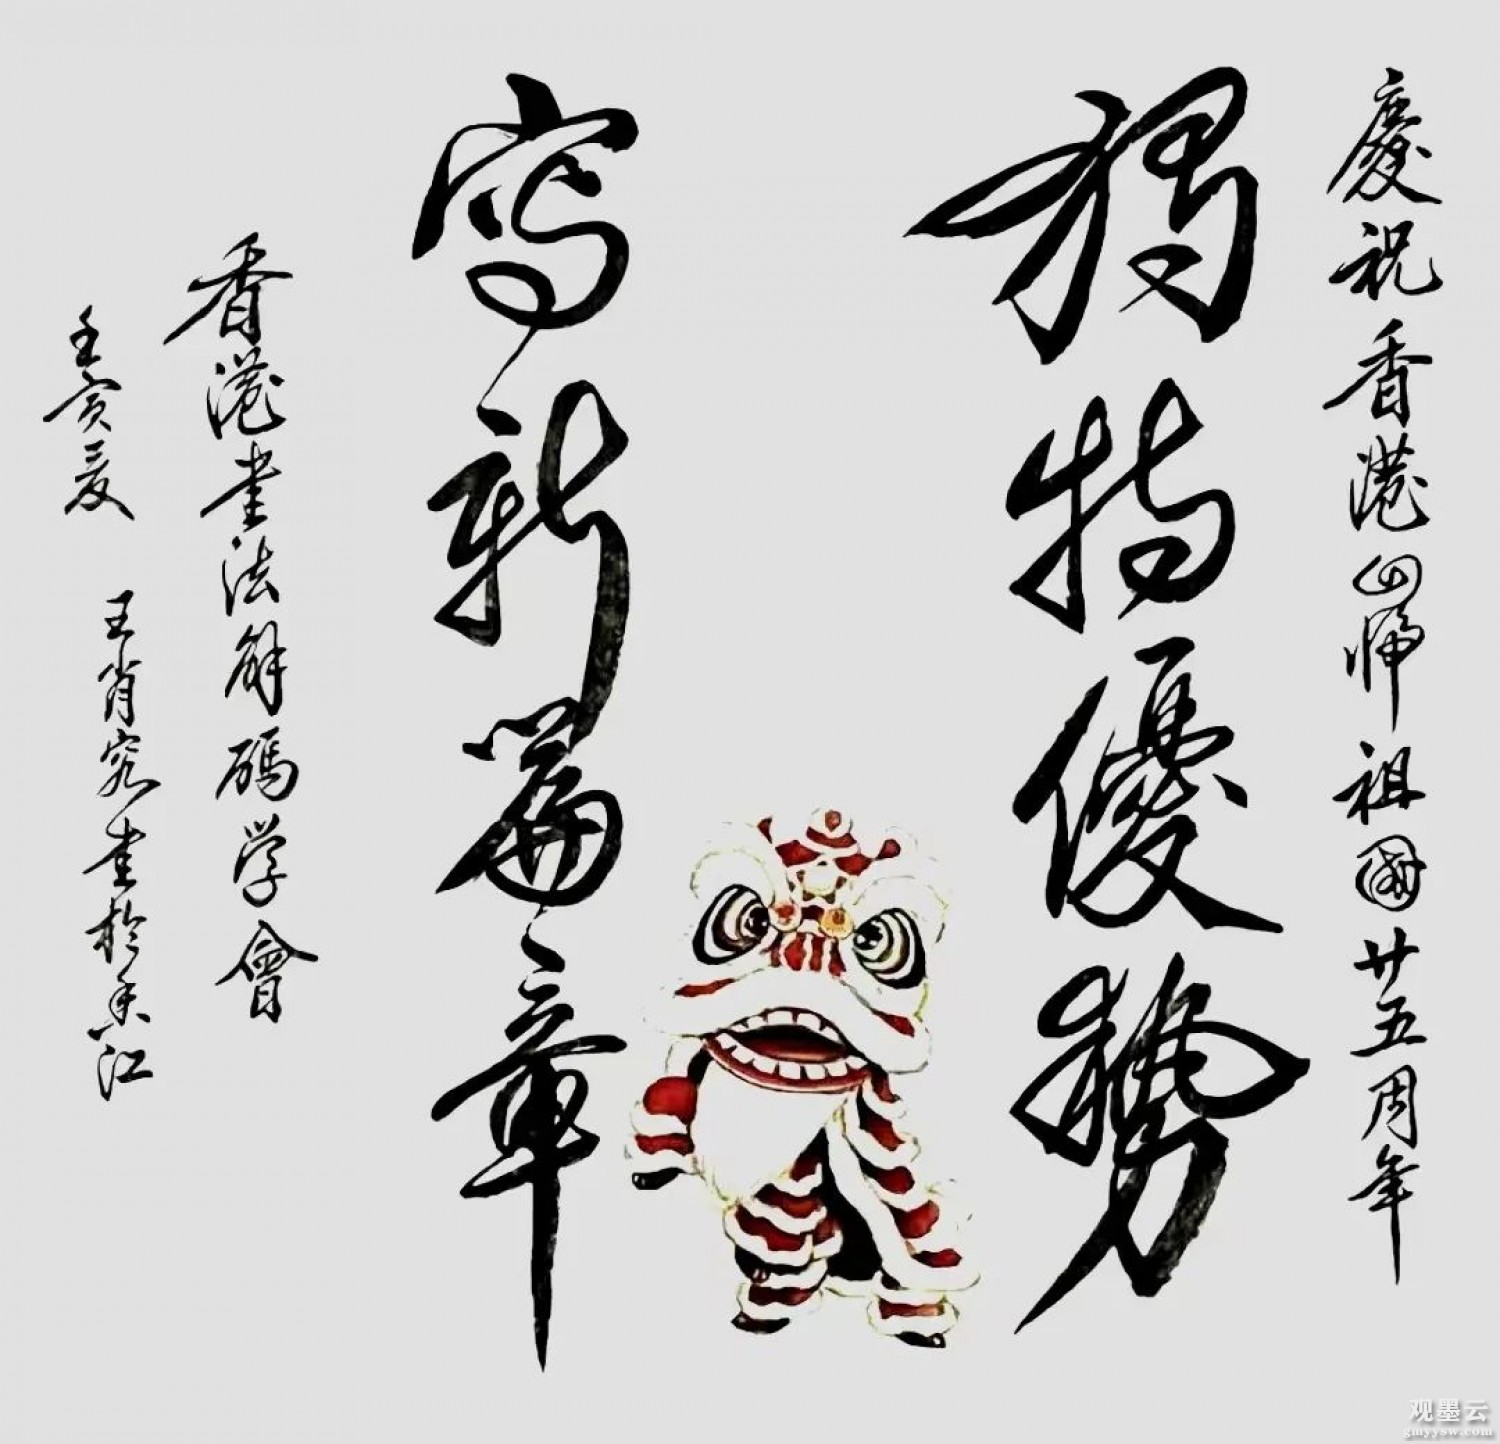 慶祝香港回歸祖國廿五周年
獨特優勢
寫新篇章
香港書法解碼学會
壬寅夏 王肖究書於香江
观墨云
gmyysw.com